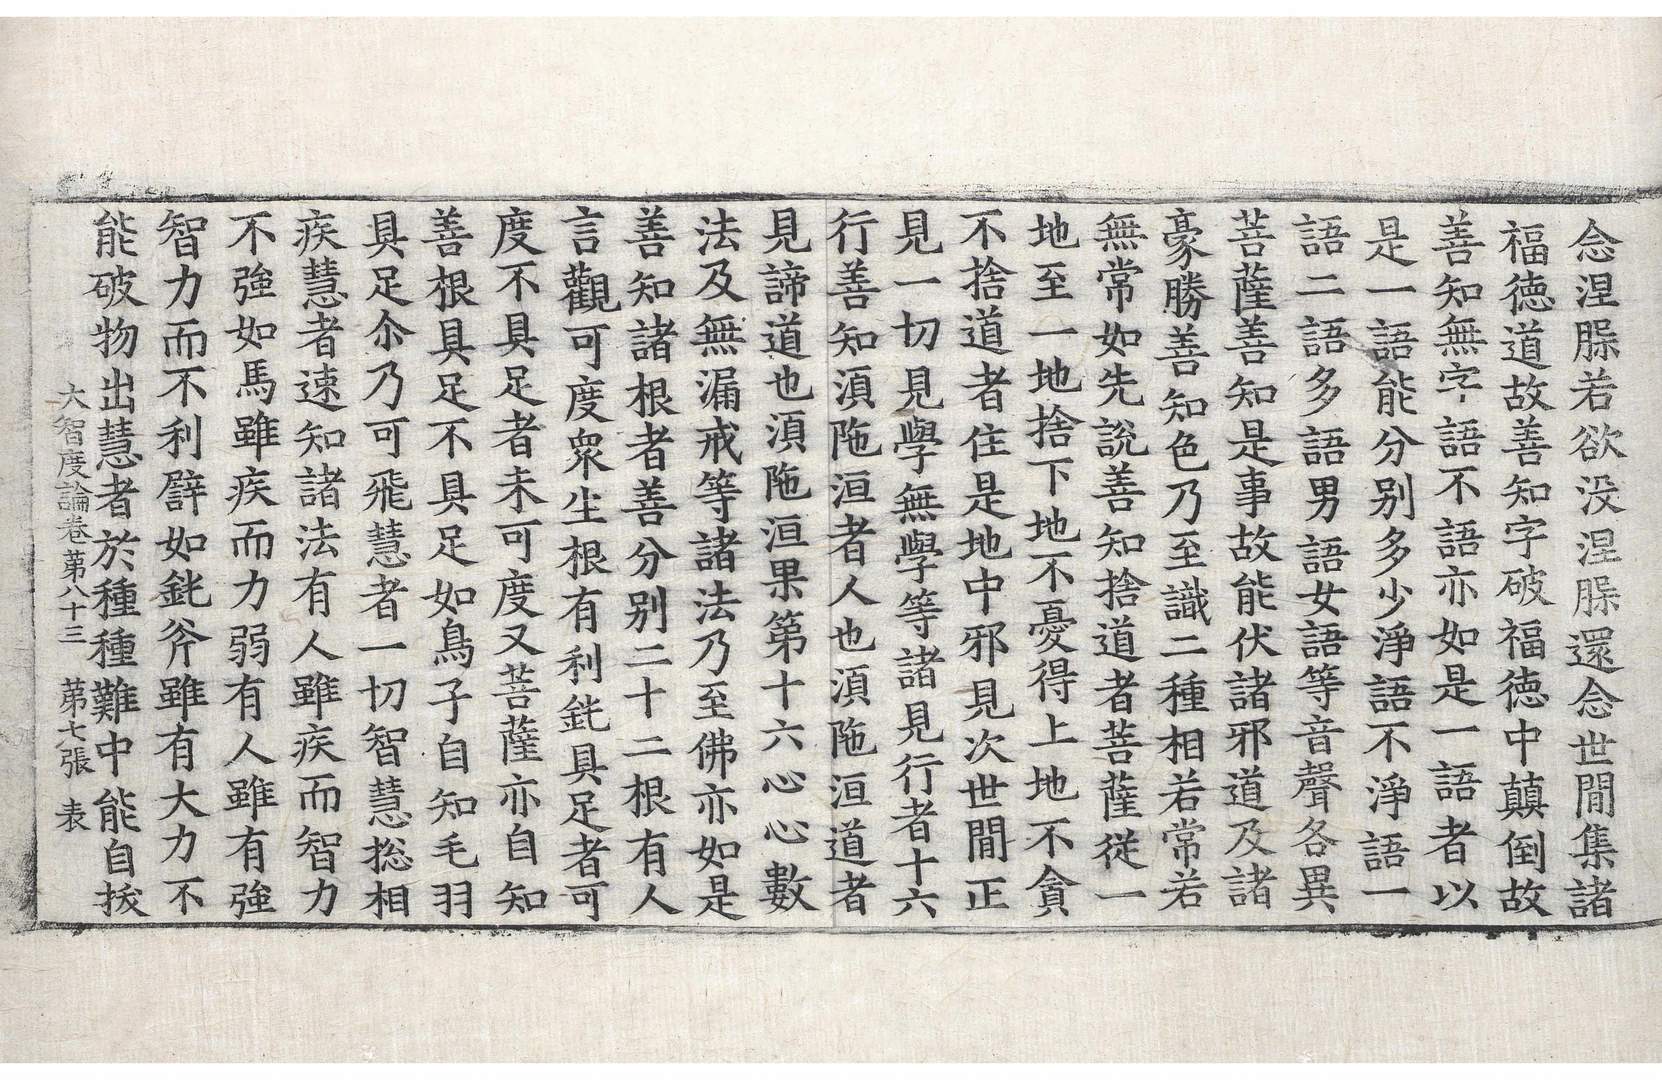 念涅槃若欲没涅槃還念世閒集諸
福徳道故善知字破福徳中顛倒故
善知無字語不語亦如是一語者以
是一語能分别多少淨語不淨語一
語二語多語男語女語等音聲各異
菩薩善知是事故能伏諸邪道及諸
豪勝善知色乃至識二種相若常若
無常如先說善知捨道者菩薩從一
地至一地捨下地不憂得上地不貪
不捨道者住是地中邪見次世閒正
見一切見學無學等諸見行者十六
行善知湏陁洹者人也湏陁洹道者
見諦道也湏陁洹果第十六心心數
法及無漏戒等諸法乃至佛亦如是
善知諸根者善分别二十二根有人
言觀可度衆生根有利鈍具足者可
度不具足者未可度又菩薩亦自知
善根具足不具足如鳥子自知毛羽
具足尒乃可飛慧者一切智慧捴相
疾慧者速知諸法有人雖疾而智力
不強如馬雖疾而力弱有人雖有強
智力而不利譬如鈍斧雖有大力不
能破物出慧者於種種難中能自拔
大智度論卷第八十三 第七張 表